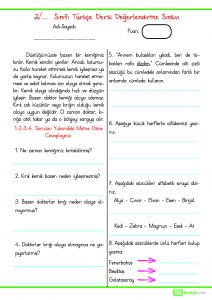 2/.... Sınıfı Türkçe Dersi Değerlendirme Sınavı
Adı-Soyadı:
Puan:
Düştüğümüzde bazen bir kemiğimiz
kırılır. Kemik kendini yeniler. Ancak, kolumu-
zu fazla hareket ettirmek kemik iyileşmez ya
da yanlış kaynar. Kolumuzun hareket etme-
mesi ve sabit kalması için alçıya almak gere-
kir. Kemik alçıya alındığında hızlı ve düzgün
iyileşir. Bazen doktor kemiği alçıya alamaz.
Kırık çok küçüktür veya kırığın olduğu kemik
alçıya uygun değildir. O zaman doktor, kı-
rığa atel takar ya da o bölgeyi sargıya alır.
1-2-3-4. Soruları Yukarıdaki Metne Göre
Cevaplayınız.
1. Ne zaman kemiğimiz kırılabilirmiş?
2. Kırık kemik neden iyileşmezmiş?
3. Bazen doktorlar kırığı neden alçıya al-
mıyormuş?
4. Doktorlar kırığı alçıya almayınca ne ya-
pıyorlarmış?
5. "Annem bulaşıkları yıkadı, ben de ta-
bakları rafa dizdim." Cümlesinde altı çizili
sözcüğü bu cümledeki anlamından farklı bir
anlamda cümlede kullanın.
6. Aşağıya küçük harflerle alfabemizi yazı-
nız.
7. Aşağıdaki sözcükleri alfabetik sıraya dizi-
niz.
Alya - Çınar - Elvan - Esen - Birgül
Kedi - Zebra - Maymun - Eşek - At
8. Aşağıdaki sözcüklerde ünlü harfleri bulup
yazınız.
Fenerbahçe
Beşiktaş
Galatasaray